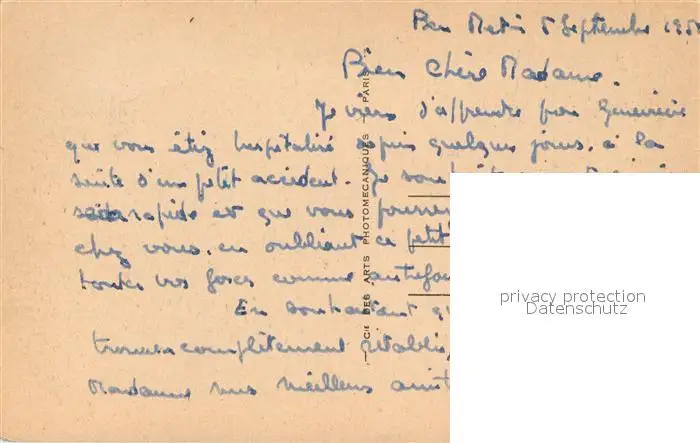 Ben Metir 5 Septembre 195
Bien Chère Madame.
Je viens d'apprendre par Geneviève
que vous étiez hospitalisé depuis quelques jours. à la
suite d'un petit accident. Je
rapide et que vous
chez vous. en oubliant ce petit
toutes vos forces comme autrefois
En souhaitant
trouver complètement rétablie,
Madame mes meilleurs
CIE DES ARTS PHOTOMECANIQUES PARIS
privacy protection
Datenschutz